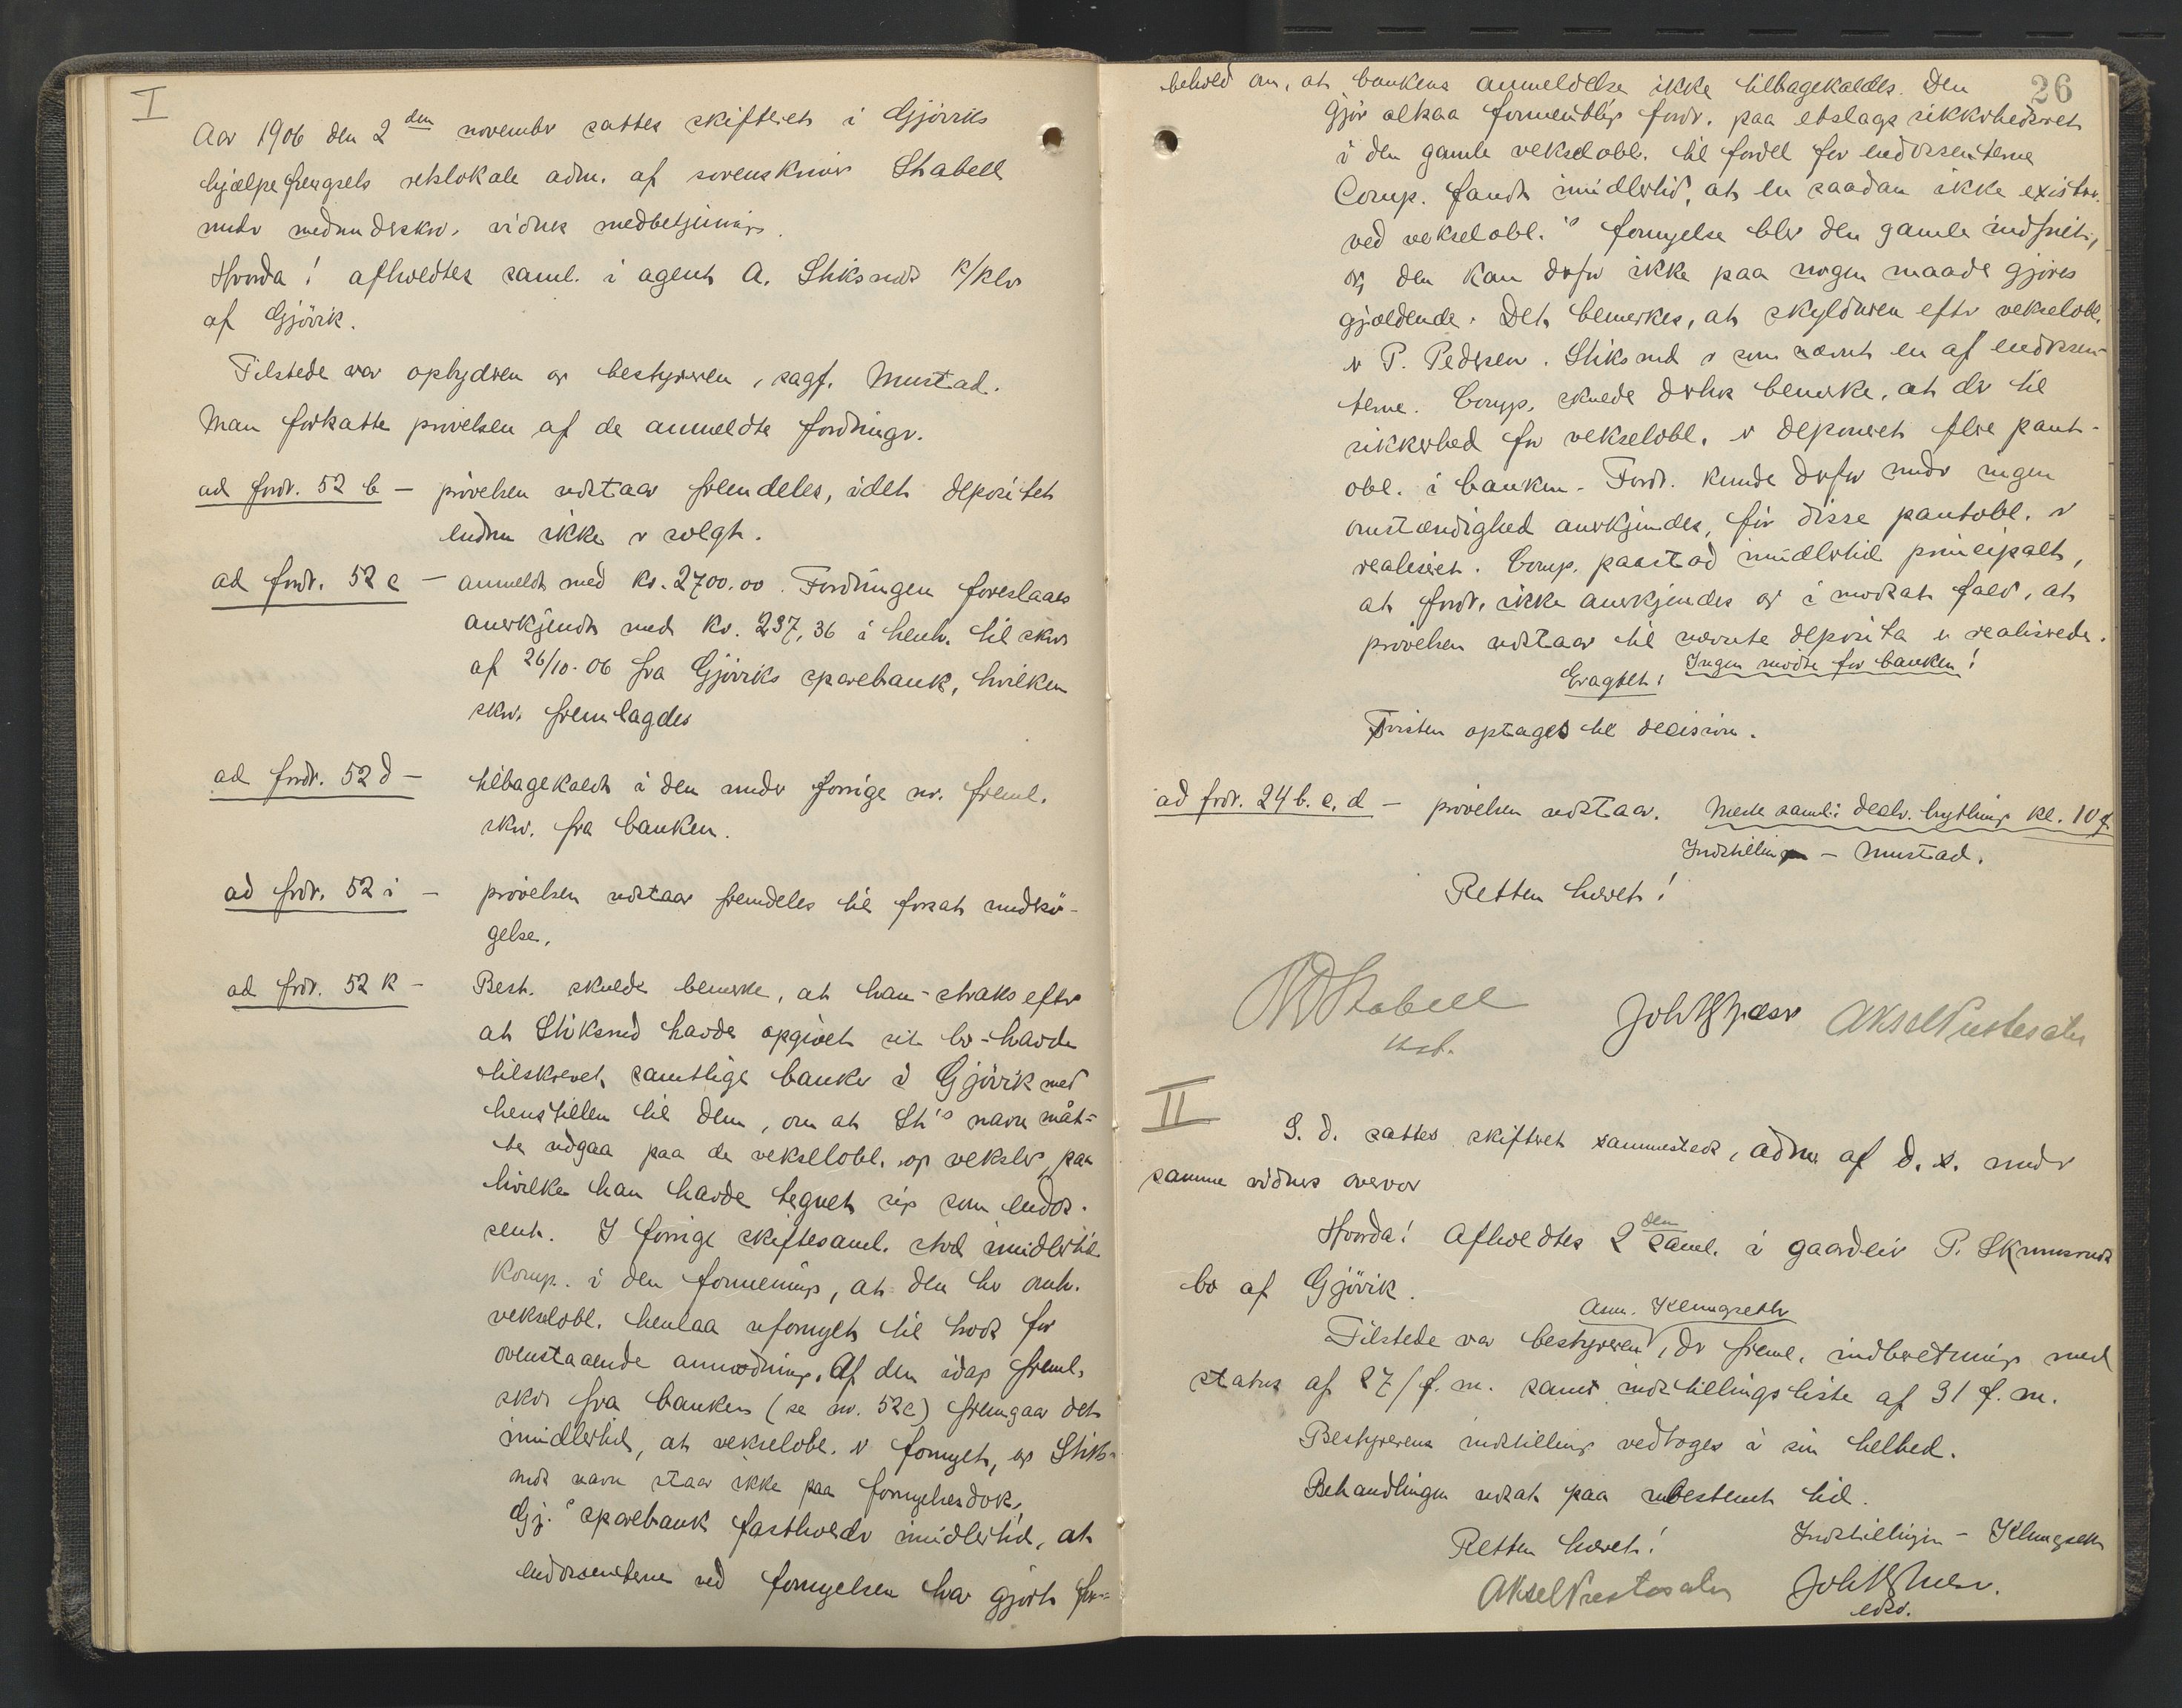 I
Aar 1906 den 2den november sattes skifteret i Gjöviks
hjælpefængsels retslokale adm. af sorenskriver Stabell
under medundskr. vidners medbetjening.
Hvorda! afholdtes saml. i agent A. Stiksruds k/kbo
af Gjövik.
Tilstede var opbyderen og bestyreren, sagf. Mustad.
Man fortsatte prövelsen af de anmeldte fordringr.
ad fordr. 52 b — prövelsen udstaar fremdeles, idet depositet
endnu ikke er solgt.
ad fordr. 52 c — anmeldt med kr. 2700.00. Fordringen foreslaaes
anerkjendt med kr. 237,36 i henh. til skr.
af 26/10-06 fra Gjöviks sparebank, hvilken
skr. fremlagdes
ad fordr. 52 d — tilbagekaldt i den under forrige nr. freml.
skr. fra banken.
ad fordr. 52 i — prövelsen udstaar fremdeles til forsat undersö-
gelse.
ad fordr. 52 k — Best. skulde bemerke, at han - straks efter
at Stiksrud havde opgivet sit bo - havde
tilskrevet samtlige banker i Gjövik med
henstillen til dem, om at St's navn måt-
te udgaa paa de vekselobl. og veksler, paa
hvilke han havde tegnet sig som endos-
sent. I forrige skiftesaml. stod imidlertid
komp. i den formening, at den her omh.
vekselobl. henlaa ufornyet til trods for
ovenstaaende anmodning. Af den idag freml.
skr. fra banken (se nr. 52c) fremgaar det
imidlertid, at vekselobl. er fornyet, og Stiks-
ruds navn staar ikke paa fornyelsesdok.
Gj.s sparebank fastholder imidlertid, at
endossenterne ved fornyelsen har gjort for-
26
behold om, at bankens anmeldelse ikke tilbagekaldes. Den
gjör altsaa formentlig fordr. paa etslags sikkerhedsret
i den gamle vekselobl. til fordel for endossenterne
Comp. fandt imidlertid, at en saadan ikke existerer.
ved vekselobl.'s fornyelse blev den gamle indfriet,
og den kan derfor ikke paa nogen maade gjöres
gjældende. Det bemerkes, at skyldneren efter vekselobl.
er P. Pedersen. Stiksrud er som nævnt en af endossen-
terne. Comp. skulde derhos bemerke, at der til
sikkerhed for vekselobl. er deponeret flere pant-
obl. i banken. Fordr. kunde derfor under ingen
omstændighed anerkjendes, för disse pantobl. er
realiseret. Comp. paastod imidlertid principalt,
at fordr. ikke anerkjendes og i modsat fald, at
prövelsen udstaar til nævnte deposita er realiserede.
Ingen mödte for banken!
Eragtet:
Tvisten optages til decision.
ad fordr. 24 b. c. d — prövelsen udstaar. Neste saml: kl. 10 f.
Indstillingen - Mustad.
Retten hævet!
Stabell
Aksel
II
S. d. sattes skifteret sammesteds, adm. af d. s. under
samme vidners overvær
Hvorda! Afholdtes 2den saml. i gaardeier P. Skrinsruds
bo af Gjövik.
Asm. Klungseth
Tilstede var bestyreren, der freml. indberetning med
status af 27/f. m. samt indstillingsliste af 31 f. m.
Bestyrerens indstilling vedtoges i sin helhed.
Behandlingen udsat paa ubestemt tid.
Retten hævet! Indstillingen - Klungseth
Aksel